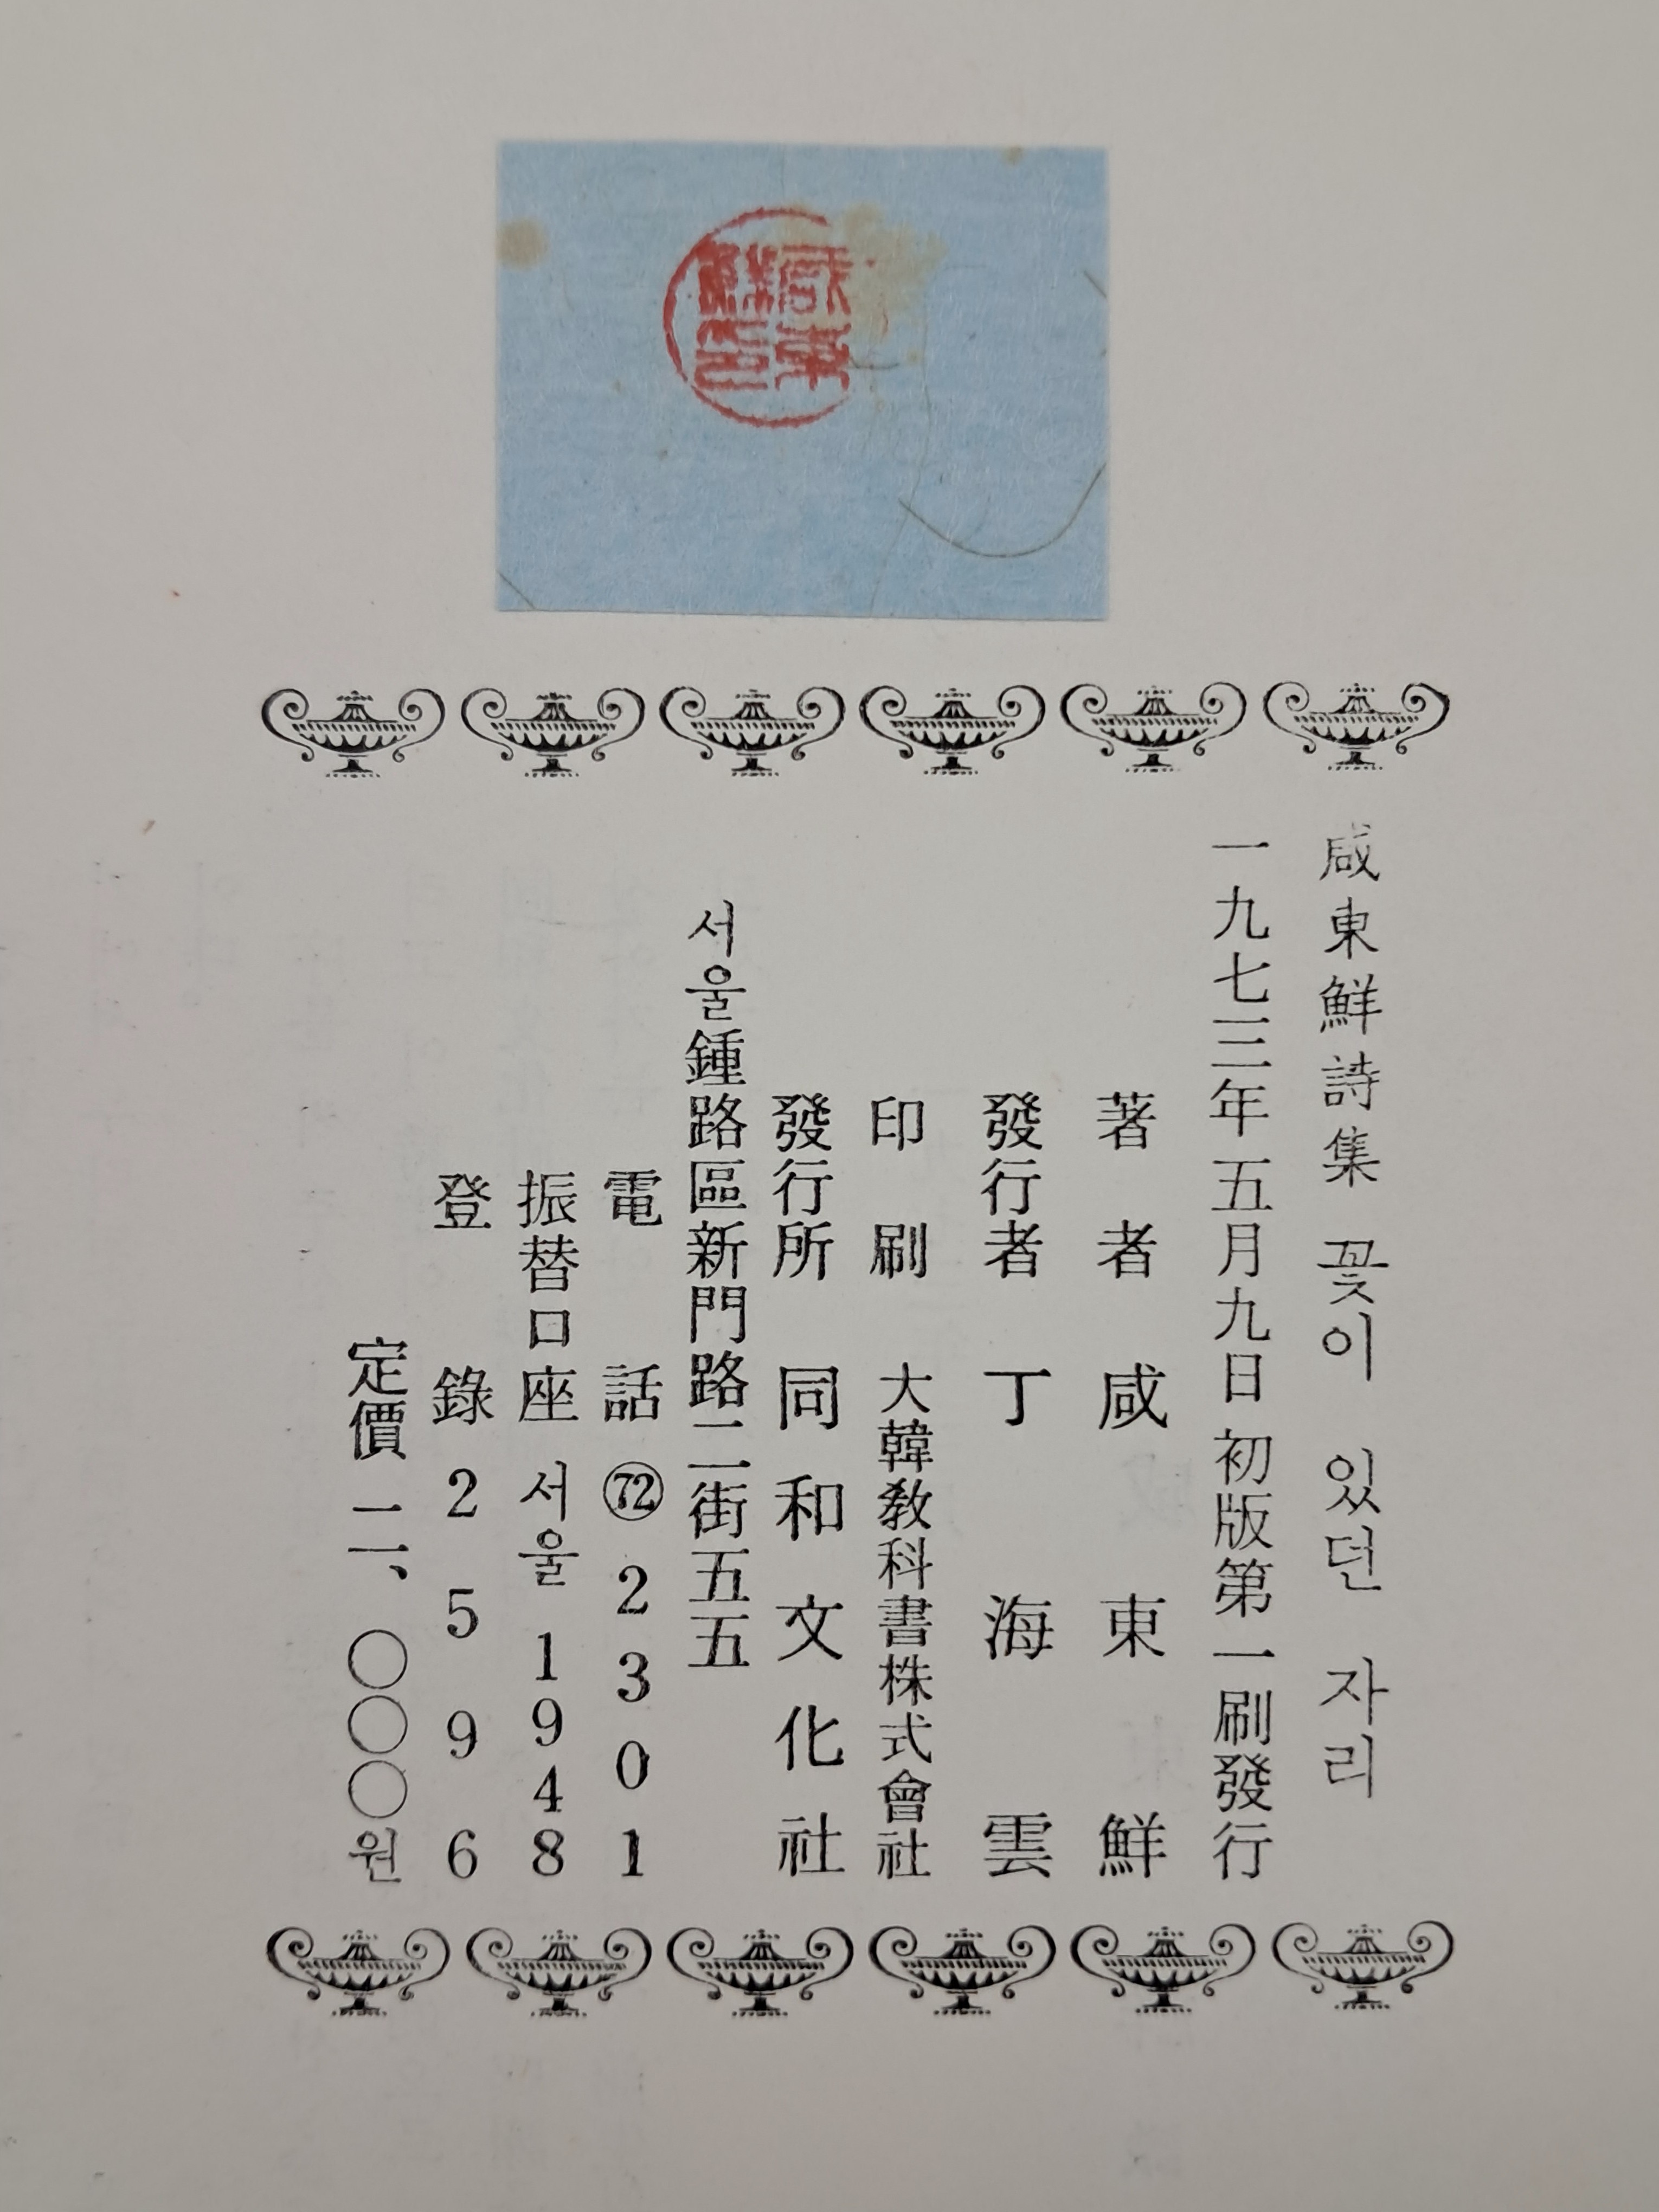 咸東鮮印
咸東鮮詩集 꽃이 있던 자리
一九七三年五月九日 初版第一刷發行
著者 咸東鮮
發行者 丁海雲
印刷 大韓敎科書株式會社
發行所 同和文化社
서울鍾路區新門路二街五五
電話 ㊆ 2301
振替口座 서울 1948
登錄 2596
定價 二、〇〇〇원